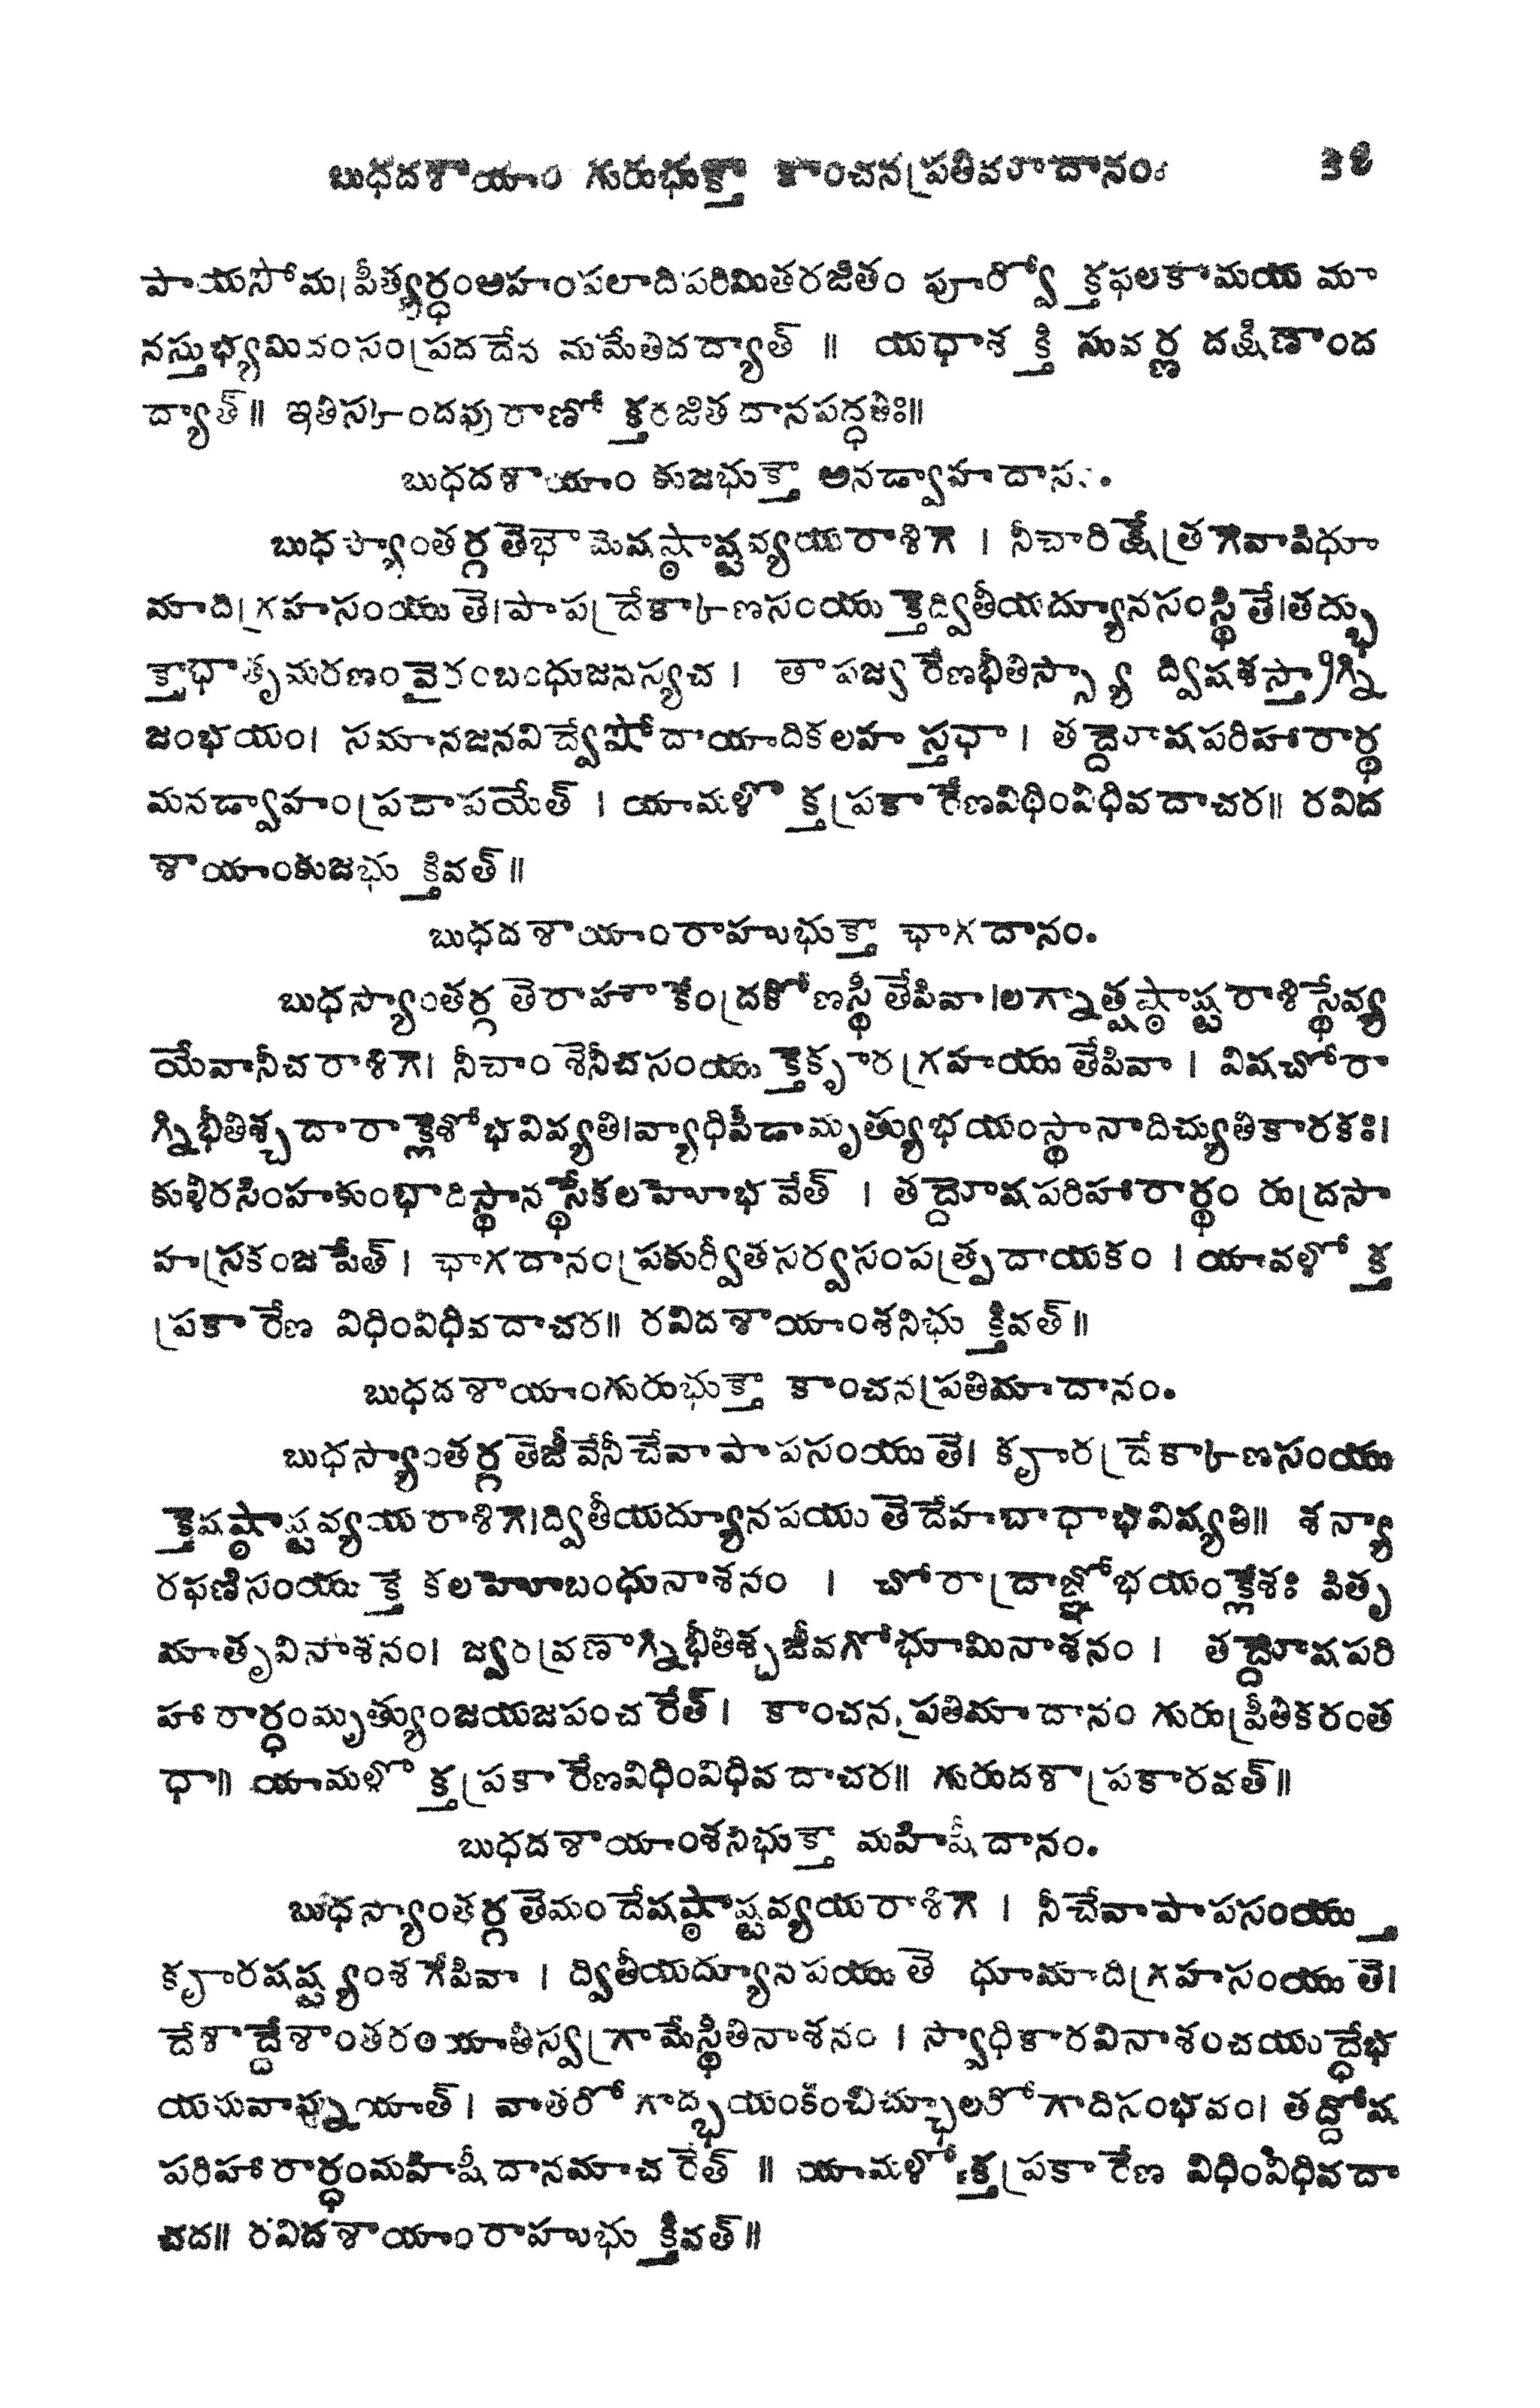 బుధదశాయాం గురుభుక్తౌ కాంచనప్రతిమాదానం.
పాయసోమప్రీత్యర్థంఅహంపలాదిపరిమితరజితం పూర్వోక్తఫలకామయ మా
నస్తుభ్యమిదంసంప్రదదేన మమేతిదద్యాత్ ॥ యధాశక్తి సువర్ణ దక్షిణాంద
ద్యాత్॥ ఇతిస్కాందపురాణోక్తరజితదానపద్ధతిః॥
బుధదశాయాం కుజభుక్తౌ అనడ్వాహదానం.
బుధస్యాంతర్గతెభౌమెషష్ఠాష్టవ్యయరాశిగె । నీచారిక్షేత్రగెవాపిధూ
మాదిగ్రహసంయుతె।పాపద్రేకాణసంయుక్తెద్వితీయద్యూనసంస్థితే।తద్భు
క్తౌభాతృమరణంవైరంబంధుజనస్యచ । తాపజ్వరేణభీతిస్స్యాద్విషశస్త్రాగ్ని
జంభయం। సమానజనవిద్వేషోదాయాదికలహస్తథా । తద్దోషపరిహారార్థ
మనడ్వాహంప్రదాపయేత్ । యామళోక్తప్రకారేణవిధింవిధివదాచర॥ రవిద
శాయాంకుజభుక్తివత్॥
బుధదశాయాంరాహుభుక్తౌ ఛాగదానం.
బుధస్యాంతర్గతెరాహౌకేంద్రకోణస్థితేపివా।లగ్నాత్షష్ఠాష్టరాశిస్థేవ్య
యేవానీచరాశిగె। నీచాంశెనీచసంయుక్తెకృూరగ్రహయుతేపివా । విషచోరా
గ్నిభీతిశ్చదారాక్లెశోభవివ్యతి।వ్యాధిపీడామృత్యుభయంస్థానాదిచ్యుతికారకః।
కుళిరసింహకుంభాదిస్థానస్థేకలహోభవేత్ । తద్దోషపరిహారార్థం రుద్రసా
హస్రకంజపేత్। ఛాగదానంప్రకుర్వీతసర్వసంపత్ప్రదాయకం । యావళోక్త
ప్రకారేణ విధింవిధివదాచర॥ రవిదశాయాంశనిభుక్తివత్॥
బుధదశాయాంగురుభుక్తౌ కాంచనప్రతిమాదానం.
బుధస్యాంతర్గతెజీవేనీచేవాపాపసంయుతే। కృూరద్రేకాణసంయు
క్తెషష్ఠాష్టవ్యయరాశిగె।ద్వితీయద్యూనపయుతెదేహబాధాభవివ్యతి॥ శన్యా
రఫణిసంయుక్తే కలహోబంధునాశనం । చోరాద్రాజ్ఞోభయంక్లేశః పితృ
మాతృవినాశనం। జ్వరవ్రణాగ్నిభీతిశ్చజీవగోభూమినాశనం । తద్దోషపరి
హారార్థంమృత్యుంజయజపంచరేత్। కాంచనప్రతిమాదానం గురుప్రీతికరంత
ధా॥ యామళోక్తప్రకారేణవిధింవిధివదాచర॥ గురుదశాప్రకారవత్॥
బుధదశాయాంశనిభుక్తౌ మహిషీదానం.
బుధస్యాంతర్గతెమందేషష్ఠాష్టవ్యయరాశిగె । నీచేవాపాపసంయుక్త
కృూరషష్ట్యంశగేపివా । ద్వితీయద్యూనపయుతె ధూమాదిగ్రహసంయుతె।
దేశాద్దేశాంతరంయాతిస్వగ్రామేస్థితినాశనం । స్వాధికారవినాశంచయుద్ధేభ
యమవాప్నుయాత్। వాతరోగాద్భయంకించిచ్ఛూలరోగాదిసంభవం। తద్దోష
పరిహారార్థంమహిషీదానమాచరేత్ ॥ యామళోక్తప్రకారేణ విధింవిధివదా
చద॥ రవిదశాయాంరాహుభుక్తివత్॥